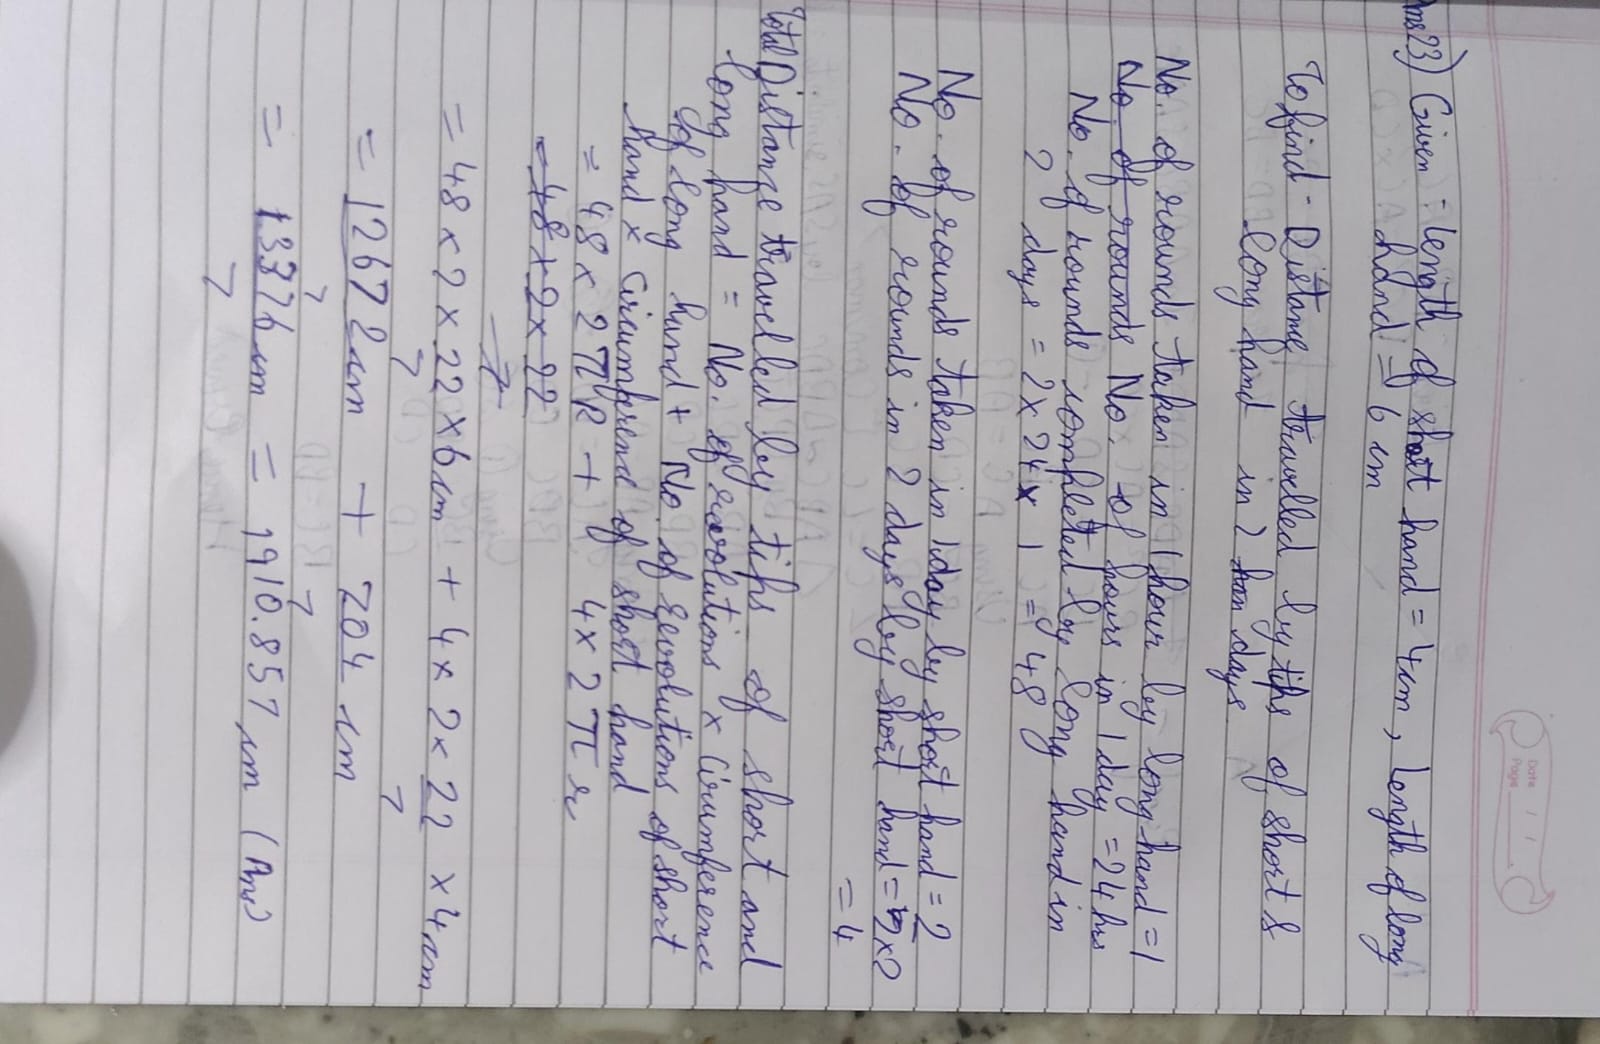 Date
Page
Ans23) Given - length of short hand = 4cm, length of long
hand = 6 cm
To find - Distance travelled by tips of short &
long hand in 2 days
No. of rounds taken in 1 hour by long hand = 1
No. of rounds No. of hours in 1 day = 24 hrs
No. of rounds completed by long hand in
2 days = 2 x 24 x 1 = 48
No. of rounds taken in 1 day by short hand = 2
No. of rounds in 2 days by short hand = 2x2
= 4
Total Distance travelled by tips of short and
long hand = No. of revolutions x Circumference
of long hand + No. of revolutions of short
hand x Circumference of short hand
= 48 x 2πR + 4x 2πr
= 48 x 2 x 22
7
= 48 x 2 x 22 x 6cm + 4 x 2 x 22 x 4cm
7 7
= 12672cm + 704 cm
7 7
= 13376cm = 1910.857 cm (Ans)
7